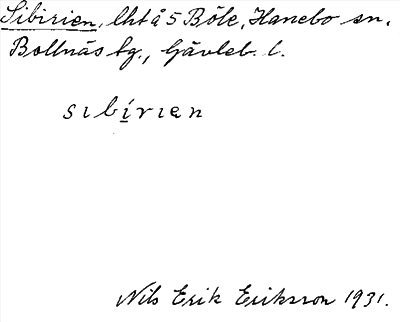 Sibirien, lht å 5 Böle, Hanebo sn,
Bollnäs tg., Gävleb. l.
sıbı́rıen
Nils Erik Eriksson 1931.